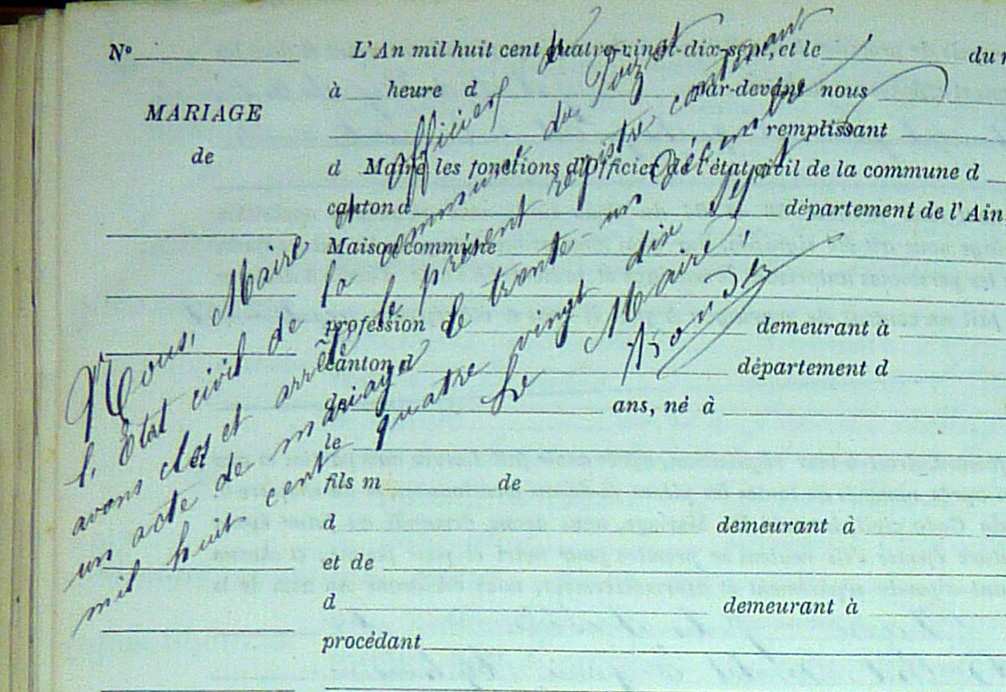 N°
L'An mil huit cent quatre-vingt-dix-sept, et le
du
à heure d par-devant nous
MARIAGE
de
remplissant
d Maire les fonctions d'Officier de l'état civil de la commune d
canton d département de l'Ain
Maison commune
profession d demeurant à
canton d département d
de ans, né à
le
fils m de
d demeurant à
et de
d demeurant à
procédant
Nous, Maire officier de
l'État civil de la commune du Poizat
avons clos et arrêté le présent registre contenant
un acte de mariage le trente-un Décembre
mil huit cent quatre vingt dix sept.
Le Maire,